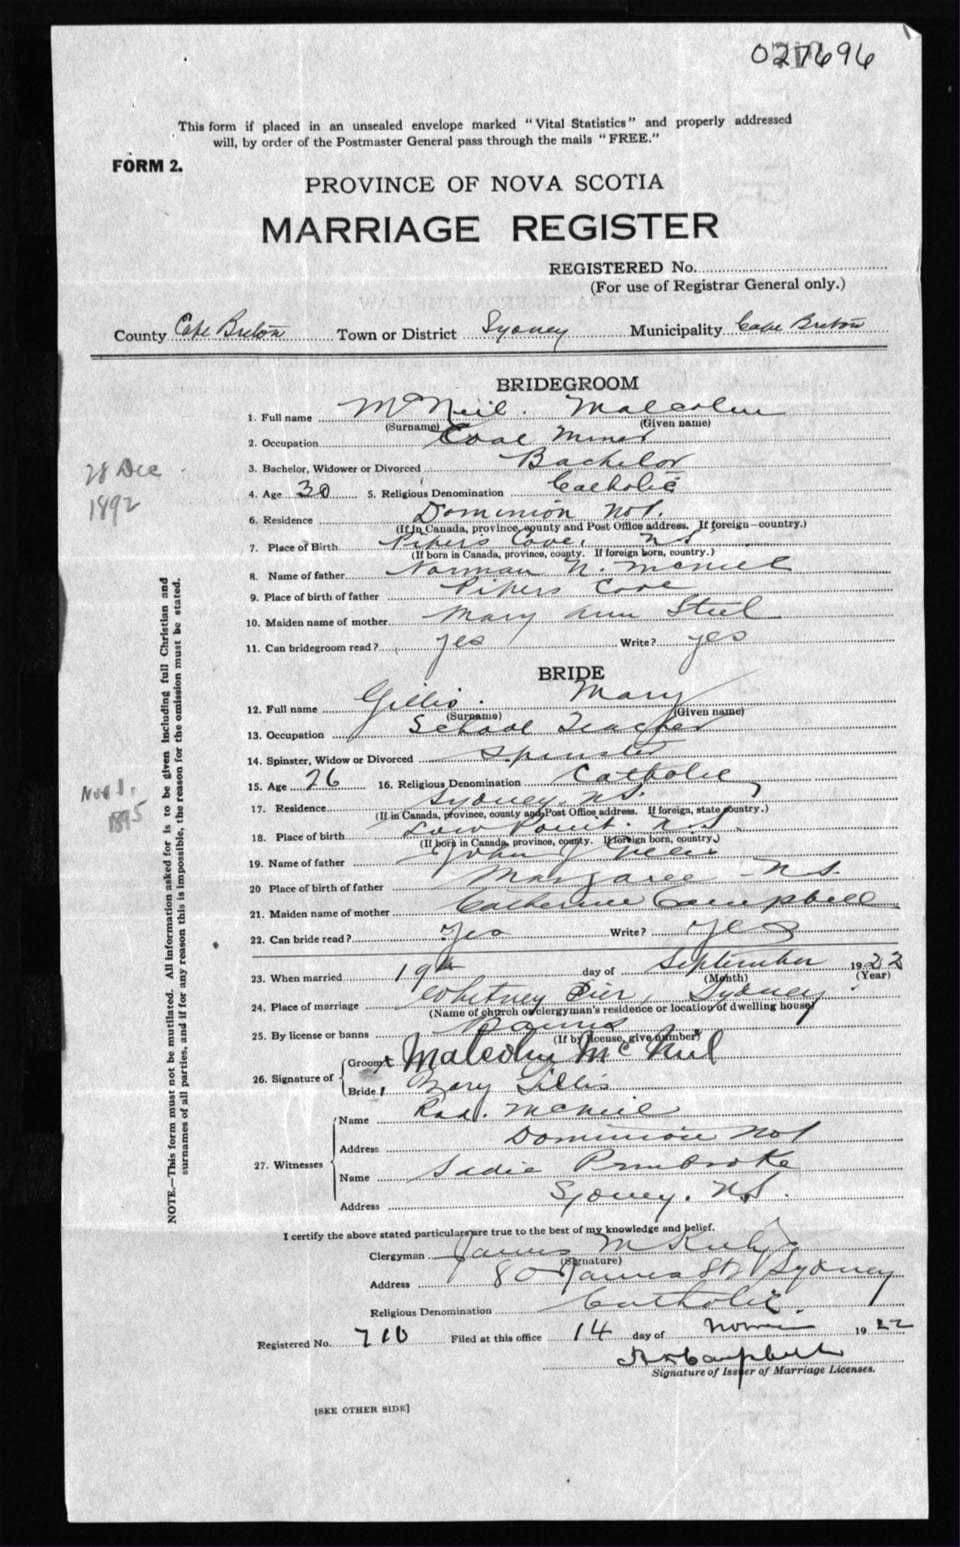 027696
This form if placed in an unsealed envelope marked "Vital Statistics" and properly addressed
will, by order of the Postmaster General pass through the mails "FREE."
FORM 2.
PROVINCE OF NOVA SCOTIA
MARRIAGE REGISTER
REGISTERED No.
(For use of Registrar General only.)
County Cape Breton Town or District Sydney Municipality Cape Breton
BRIDEGROOM
1. Full name McNeil. Malcolm
(Surname) (Given name)
2. Occupation Coal Miner
3. Bachelor, Widower or Divorced Bachelor
28 Dec
1892
4. Age 30 5. Religious Denomination Catholic
6. Residence Dominion No1.
(If in Canada, province, county and Post Office address. If foreign—country.)
7. Place of Birth Pipers Cove, NS
(If born in Canada, province, county. If foreign born, country.)
8. Name of father Norman N. McNeil
9. Place of birth of father Pipers Cove
10. Maiden name of mother Mary Ann Steel
11. Can bridegroom read? yes Write? yes
BRIDE
12. Full name Gillis. Mary
(Surname) (Given name)
13. Occupation School Teacher
14. Spinster, Widow or Divorced Spinster
15. Age 26 16. Religious Denomination Catholic
Nov 1,
1895
17. Residence Sydney, N.S.
(If in Canada, province, county and Post Office address. If foreign, state country.)
18. Place of birth Low Point N.S.
(If born in Canada, province, county. If foreign born, country.)
19. Name of father John J
20 Place of birth of father Margaree N.S.
21. Maiden name of mother Catherine Campbell
22. Can bride read? Yes Write? Yes
23. When married 19th day of September 1922
(Month) (Year)
24. Place of marriage Whitney Pier, Sydney
(Name of church or clergyman's residence or location of dwelling house)
25. By license or banns Banns
(If by license, give number)
26. Signature of Groom Malcolm McNeil
Bride Mary Gillis
27. Witnesses Name Rod. McNeil
Address Dominion No1
Name Sadie Pembroke
Address Sydney. N.S.
I certify the above stated particulars are true to the best of my knowledge and belief.
Clergyman James
(Signature)
Address 80 James St Sydney
Religious Denomination Catholic.
Registered No. 710 Filed at this office 14 day of 1922
Campbell
Signature of Issuer of Marriage Licenses.
[SEE OTHER SIDE]
NOTE.—This form must not be mutilated. All information asked for is to be given including full Christian and
surnames of all parties, and if for any reason this is impossible, the reason for the omission must be stated.